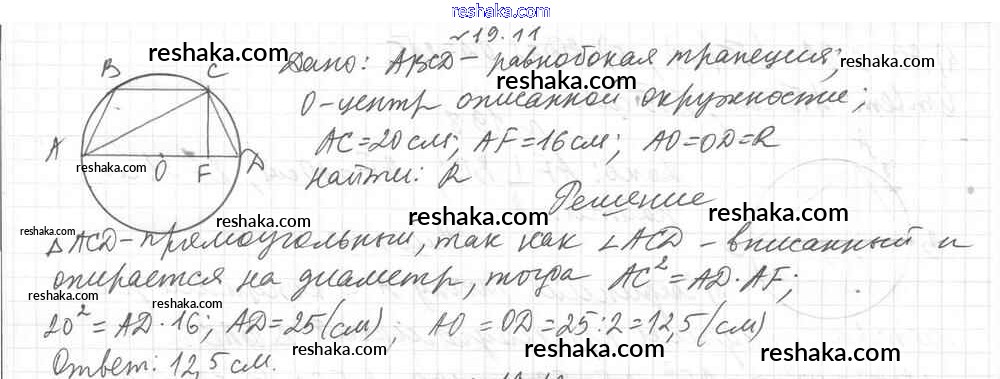 www.reshaka.com
№19.11
reshaka.com
Дано: ABCD - равнобокая трапеция;
reshaka.com
reshaka.com
B C
O - центр описанной окружности;
reshaka.com
AC = 20 см; AF = 16 см; AO = OD = R
reshaka.com
A O F D
reshaka.com
Найти: R
Решение
reshaka.com
reshaka.com
reshaka.com
△ACD - прямоугольный, так как ∠ACD - вписанный и
опирается на диаметр, тогда AC² = AD·AF;
reshaka.com
reshaka.com
reshaka.com
20² = AD·16; AD = 25 (см); AO = OD = 25:2 = 12,5 (см)
reshaka.com
reshaka.com
Ответ: 12,5 см.
reshaka.com